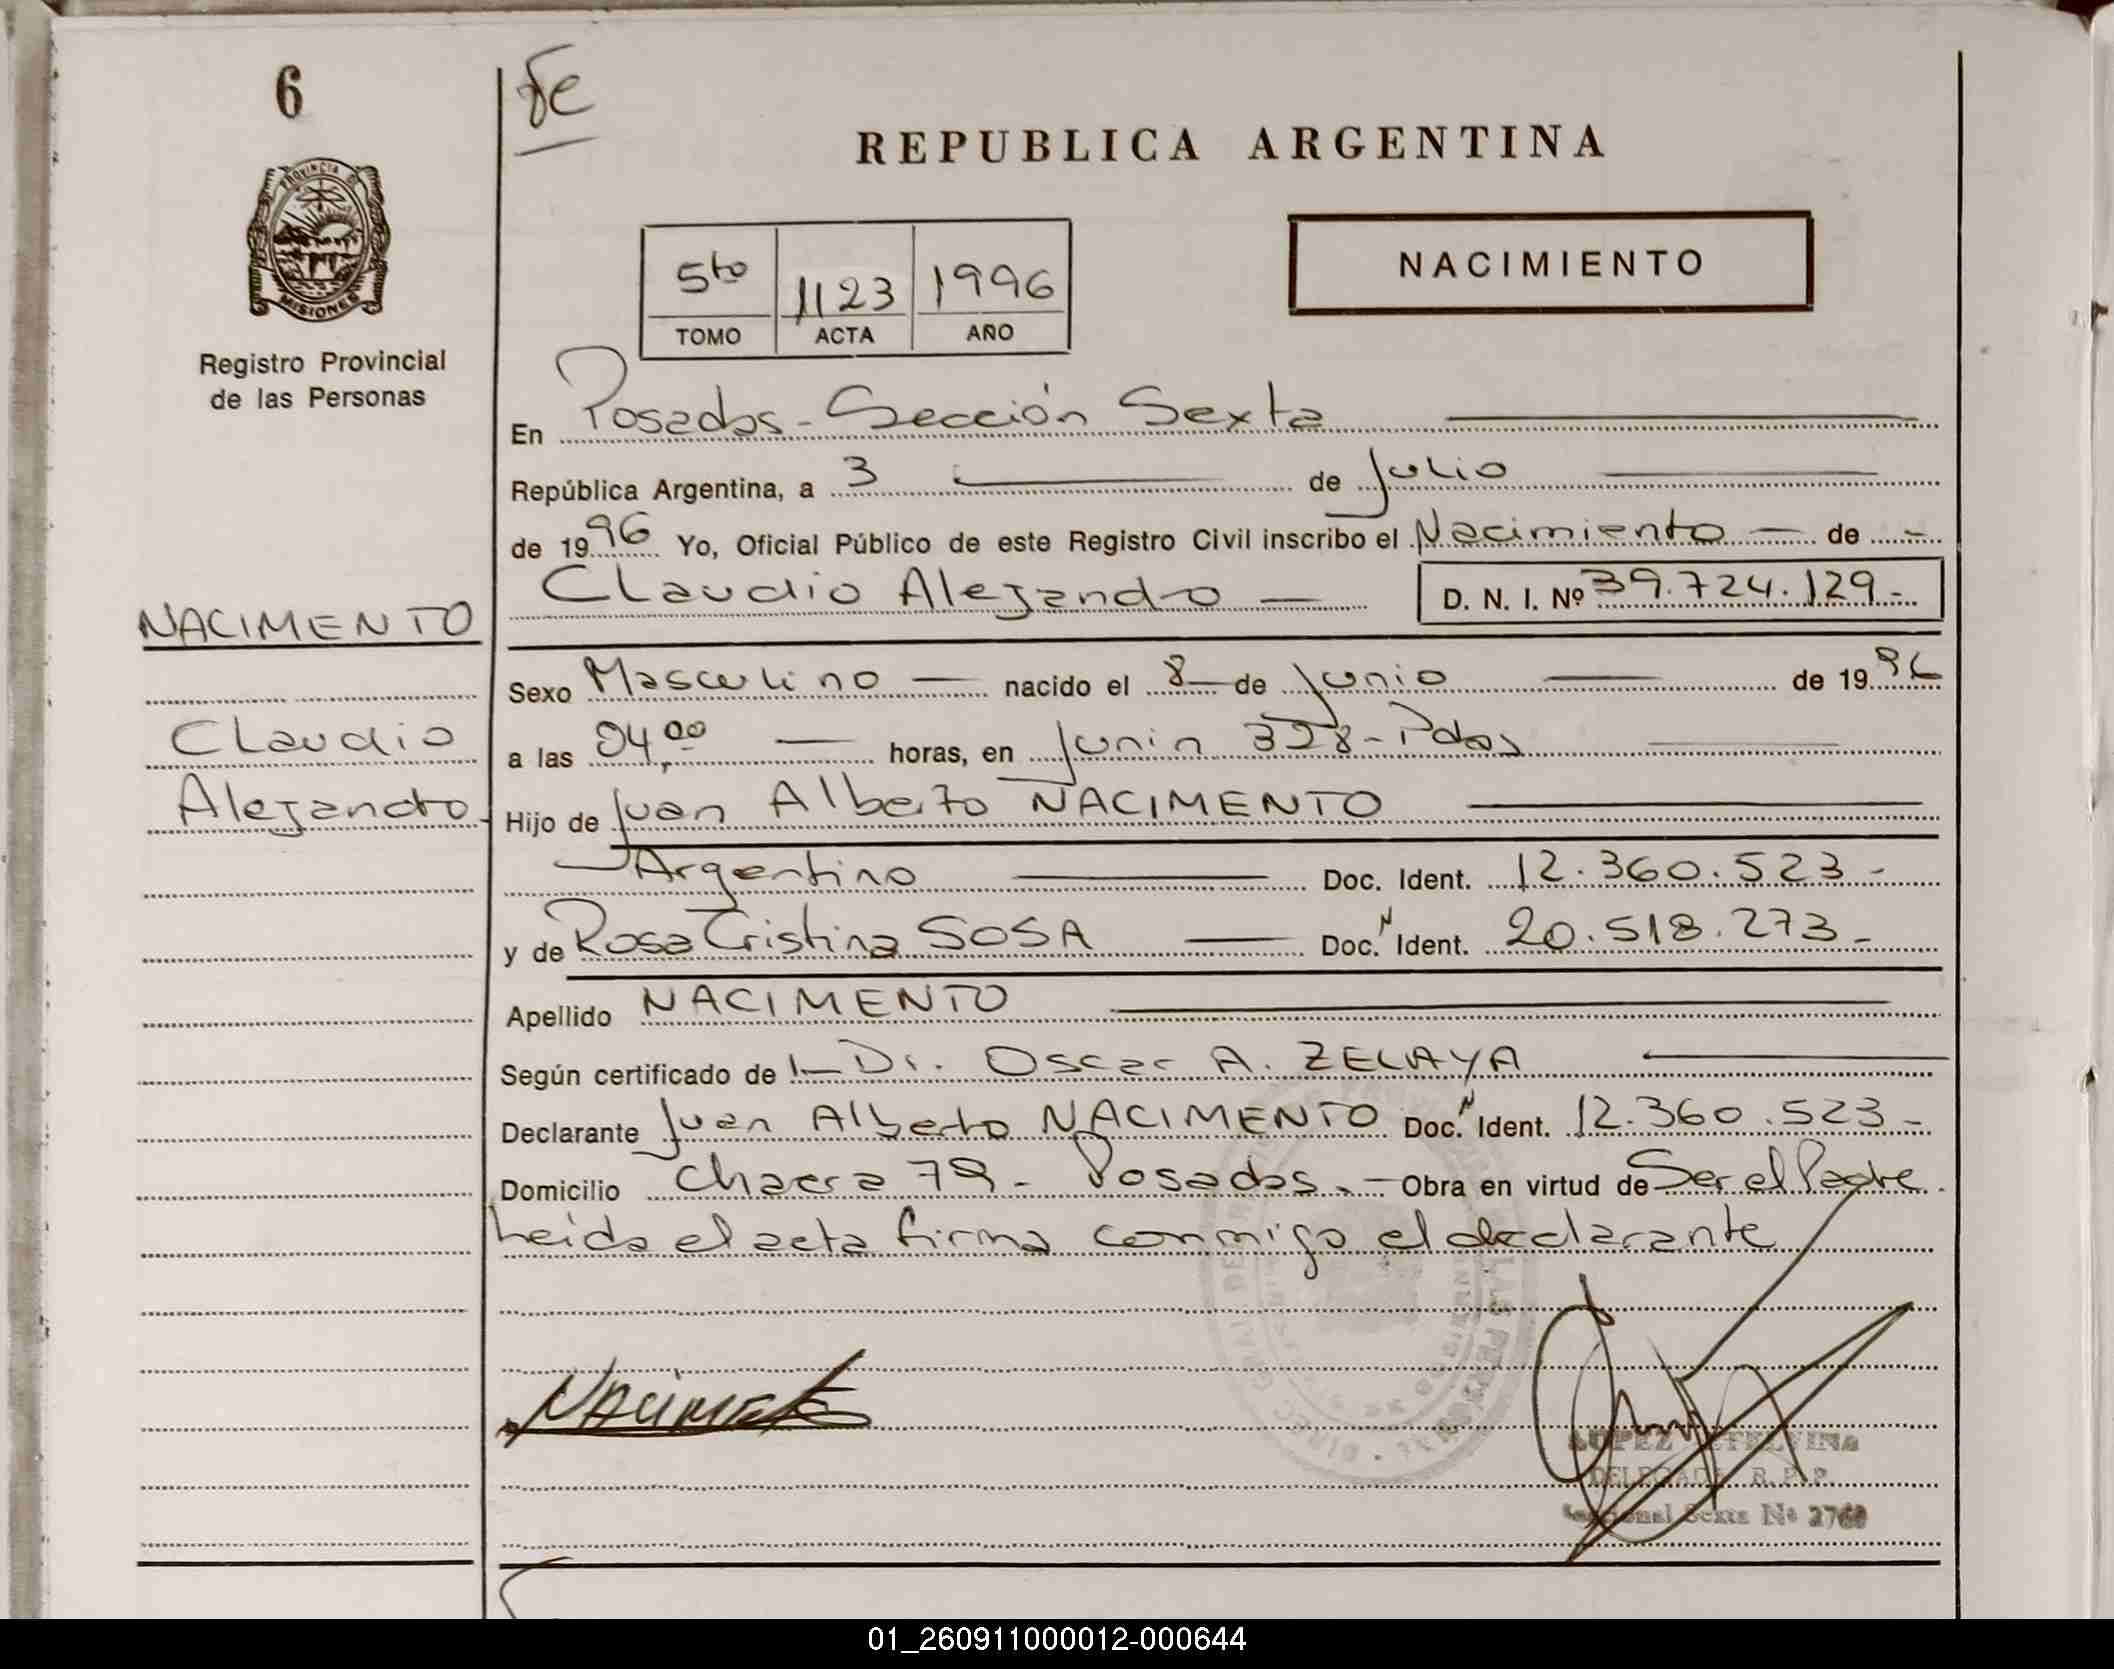 6
fe
REPUBLICA ARGENTINA
PROVINCIA DE
MISIONES
Registro Provincial
de las Personas
5to 1123 1996
TOMO ACTA AÑO
NACIMIENTO
En Posadas - Sección Sexta
República Argentina, a 3 de Julio
de 1996 Yo, Oficial Público de este Registro Civil inscribo el Nacimiento — de -
Claudio Alejandro — D. N. I. Nº 39.724.129.-
NACIMENTO
Claudio
Alejandro
Sexo Masculino — nacido el 8 — de Junio — de 1996
a las 04,00 — horas, en Junin 328 - Pdas
Hijo de Juan Alberto NACIMENTO
Argentino — Doc. Ident. 12.360.523-
y de Rosa Cristina SOSA — Doc. N Ident. 20.518.273-
Apellido NACIMENTO
Según certificado de l— Dr. Oscar A. ZELAYA
Declarante Juan Alberto NACIMENTO Doc. N Ident. 12.360.523-
Domicilio Chacra 79 - Posadas.- Obra en virtud de Ser el Padre.
Leida el acta firma conmigo el declarante
LOPEZ ETELVINA
DELEGADA R.P.P.
Seccional Sexta Nº 2760
01_260911000012-000644